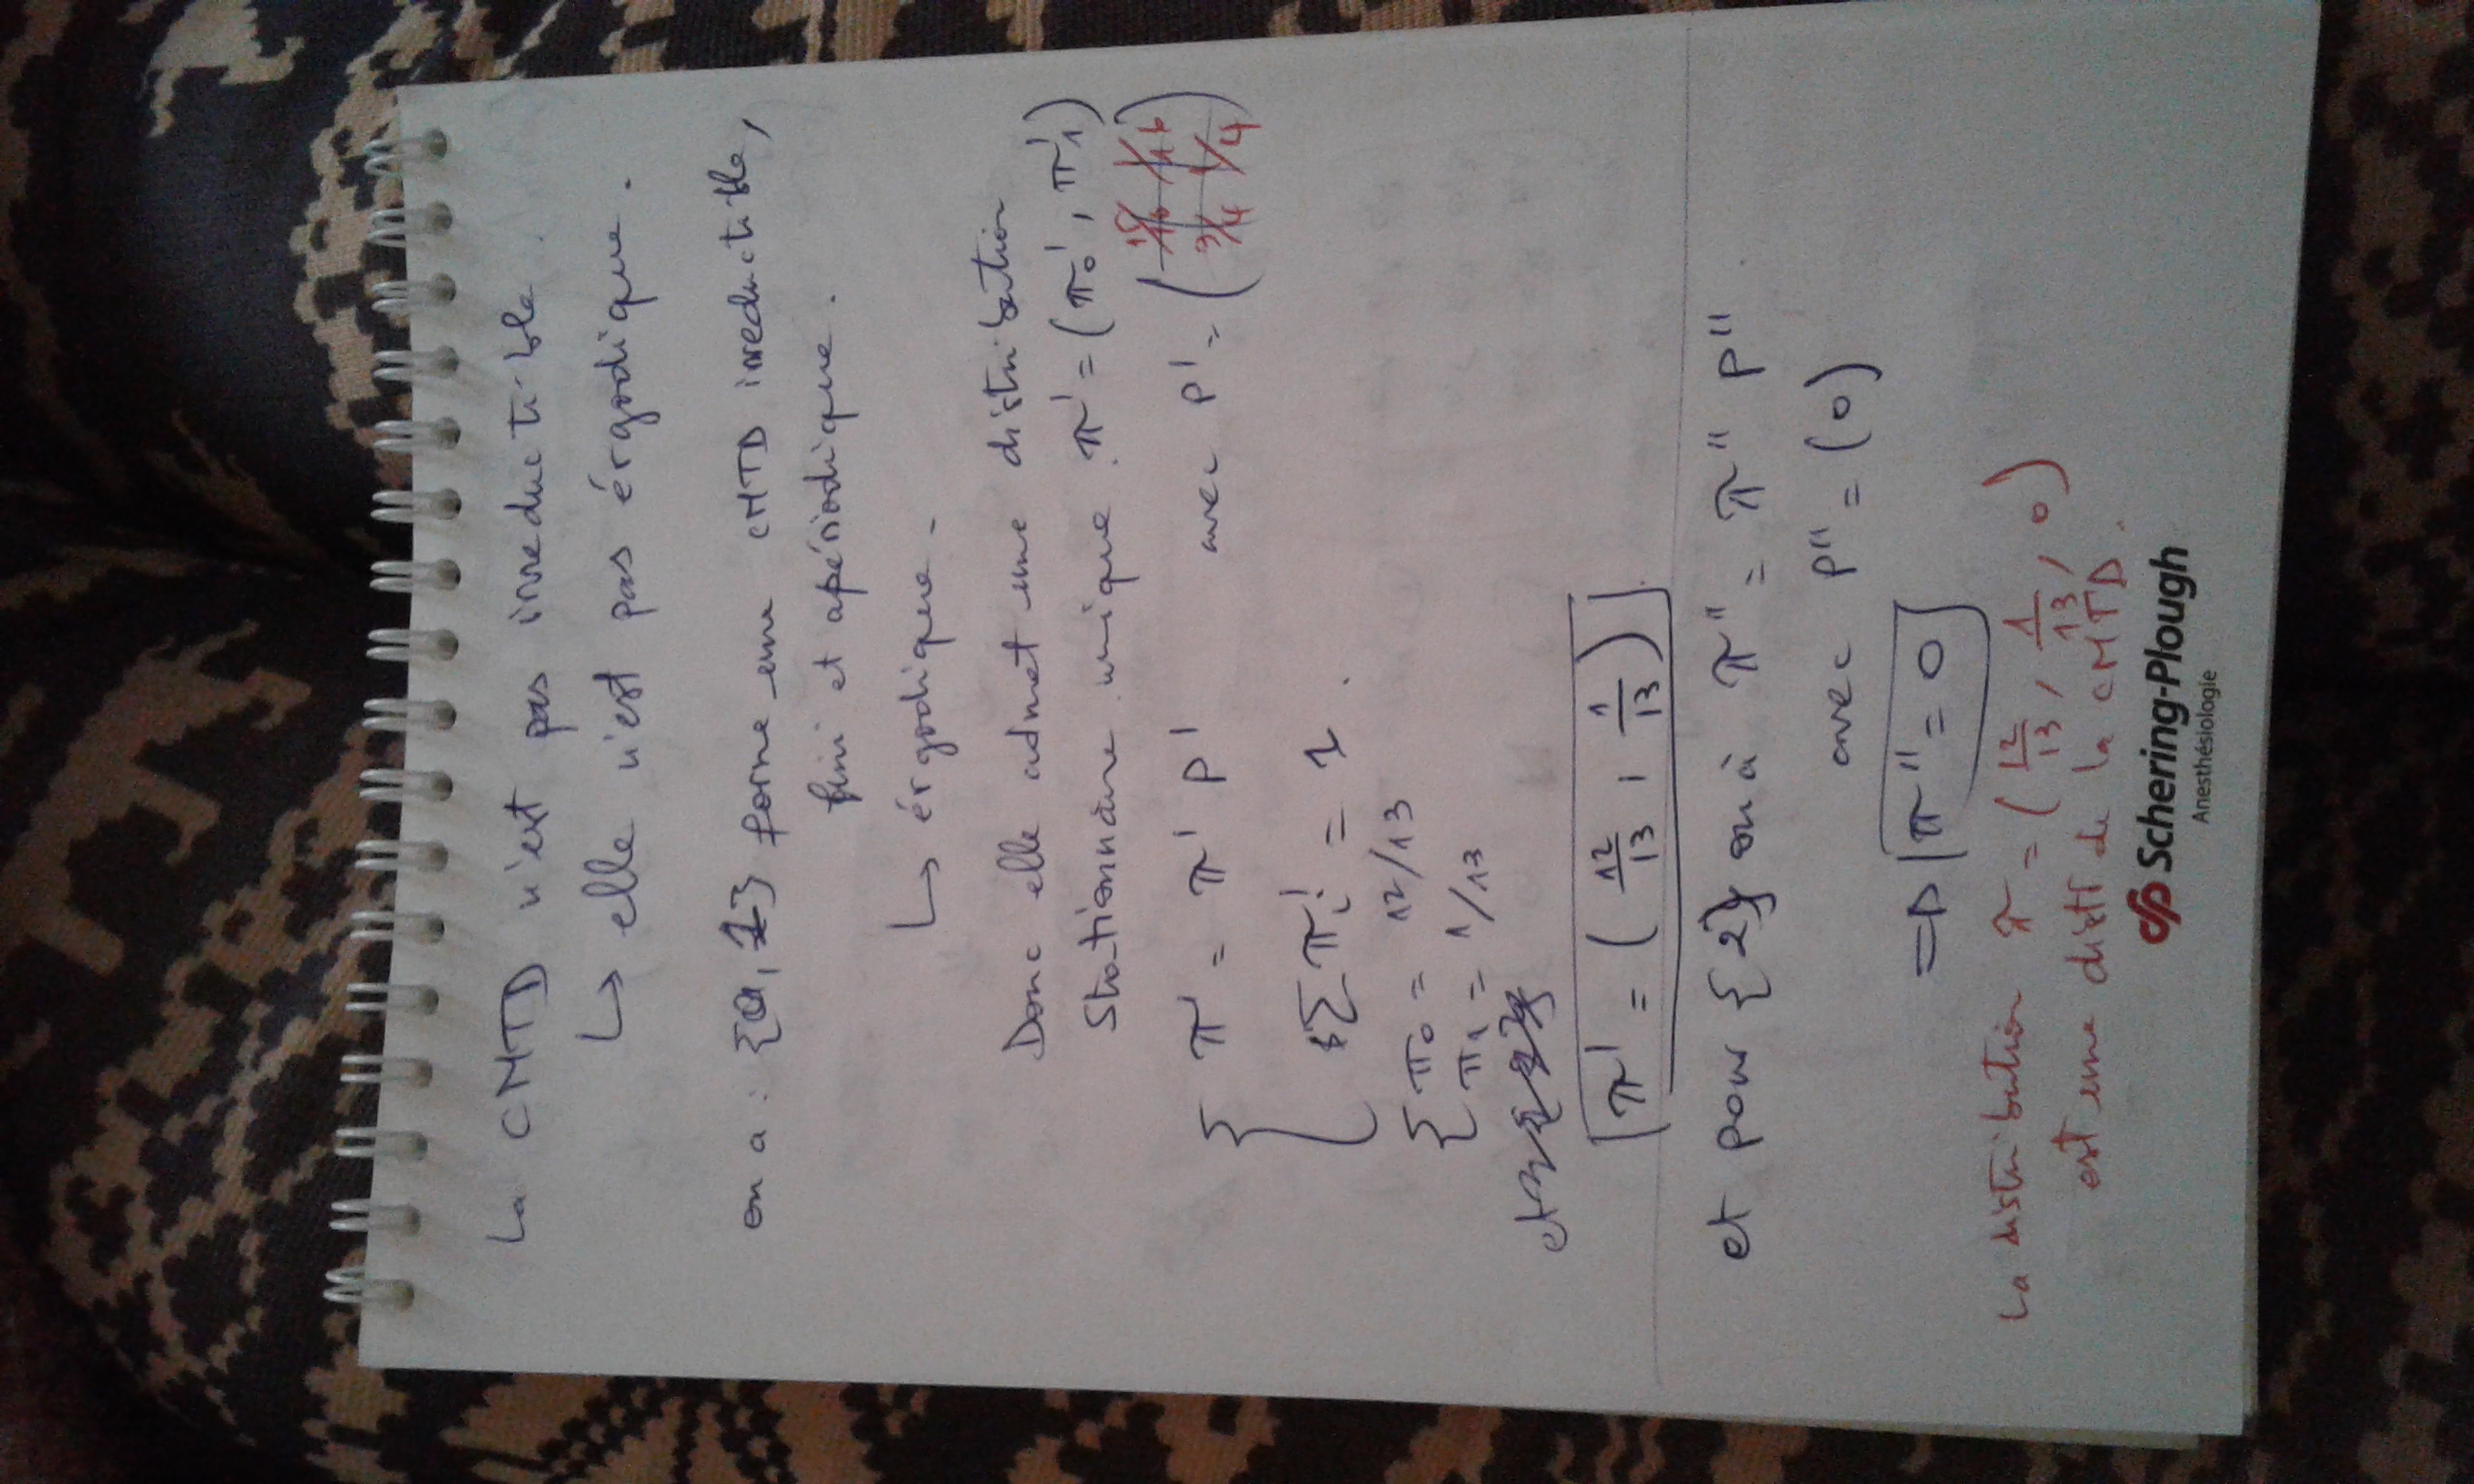 La CMTD n'est pas irreductible.
↳ elle n'est pas érgodique.
on a : {0, 1} forme une CMTD irreductible,
fini et apériodique.
↳ érgodique.
Donc elle admet une distribution
Stationnaire unique. π' = (π₀', π'₁)
{ π' = π' P' avec P' = ( 15/16 1/16
3/4 1/4 )
Σ πᵢ' = 1.
{ π₀ = 12/13
π₁ = 1/13
et
π' = ( 12/13 , 1/13 )
et pour {2} on à π'' = π'' P''
avec P'' = (0)
=> π'' = 0
La distribution π = ( 12/13 , 1/13 , 0 )
est une distr de la CMTD.
Schering-Plough
Anesthésiologie